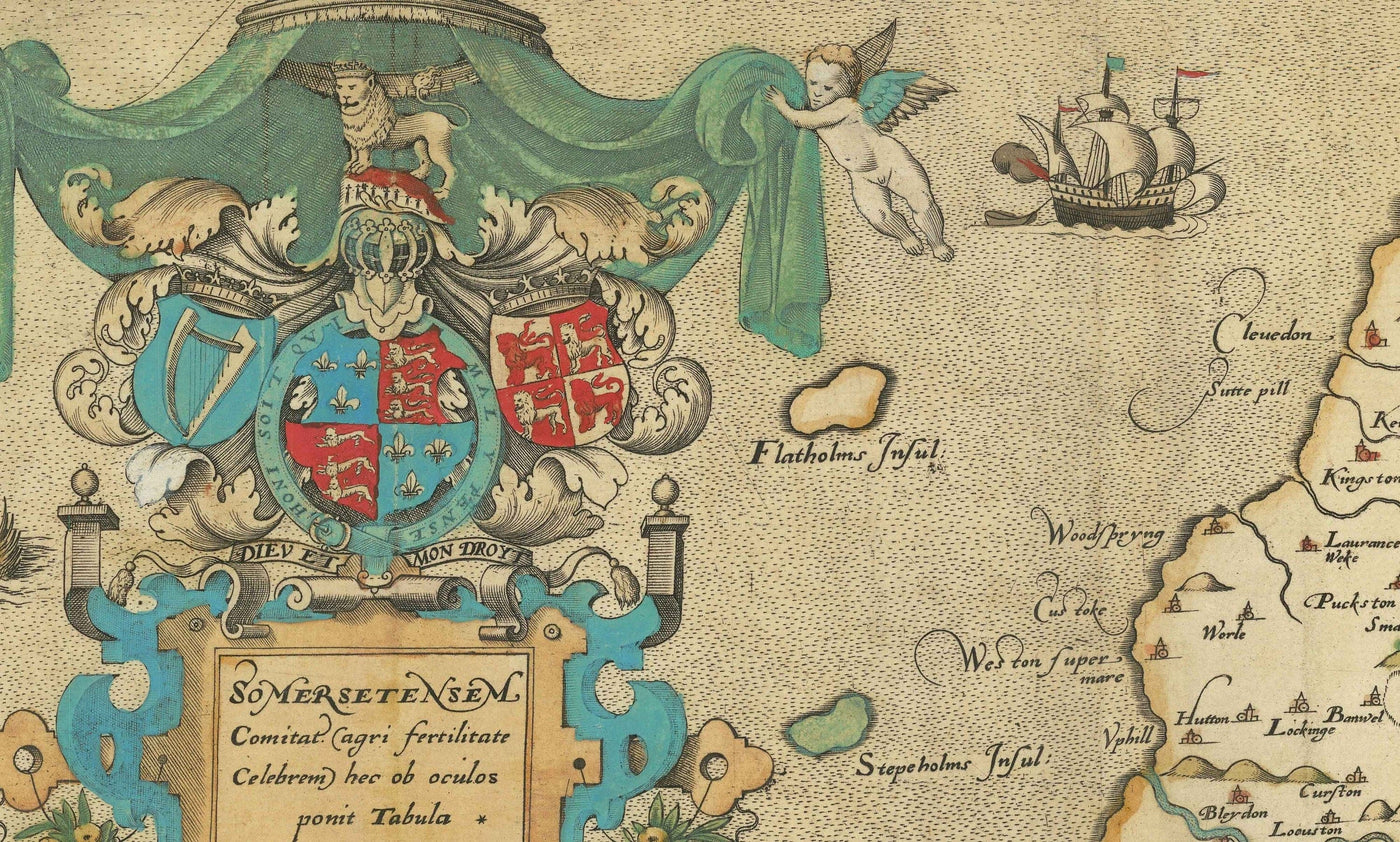 HONI SOIT QVI MAL Y PENSE
DIEV ET MON DROYT
SOMERSETENSEM
Comitat: (agri fertilitate
Celebrem) hec ob oculos
ponit Tabula *
Flatholms Insul:
Stepeholms Insul:
Cleuedon
Sutte pill
Ke
Kingston
Woodspryng
Laurance
Weke
Cus toke
Puckston
Sma
Worle
Weston super
mare
Hutton
Lockinge
Banwel
Vphill
Curston
Bleydon
Locuston